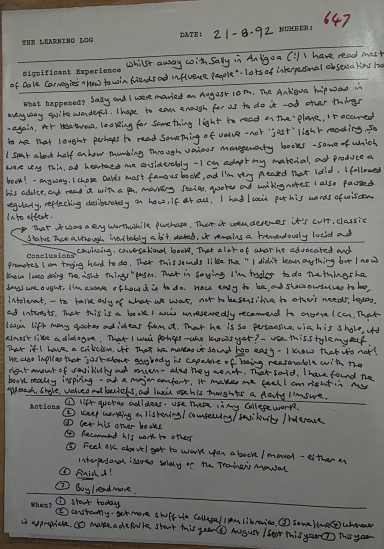 647
THE LEARNING LOG DATE: 21-8-92 NUMBER:
Significant Experience Whilst away with Sally in Antigua (!) I have read most
of Dale Carnegie's "How to win friends and influence people" - lots of interpersonal observations too
What happened? Sally and I were married on August 10th. The Antigua trip was in
every way quite wonderful. I hope to earn enough for us to do it - and other things
- again. At Heathrow, looking for something light to read on the plane, it occurred
to me that I ought perhaps to read something of value - not "just" light reading. So
I spent about half an hour thumbing through various management books - some of which
were very thin, and heartened me considerably - I can adapt my material, and produce a
book! - anyway, I chose Dale's most famous book, and I'm very pleased that I did. I followed
his advice, and read it with a pen, marking stories, quotes and writing notes. I also paused
regularly, reflecting deliberately on how, if at all, I could put his words of wisdom
into effect.
That it was a very worthwhile purchase. That it well deserves it's cult, classic
status. That although inevitably a bit dated, it remains a tremendously lucid and
convincing, conversational book. That a lot of what he advocated and
Conclusions
promotes I am trying hard to do. That this sounds like the "I didn't learn anything but I now
know I was doing the right things" That in saying I'm trying to do the things he
says we ought. I'm aware of how easy to be, and show ourselves to be,
intolerant, - to talk only of what we want, not to be sensitive to other's needs, hopes,
and interests. That this is a book I will unreservedly recommend to anyone I can. That
I will lift many quotes and ideas from it. That he is so persuasive via his style, it's
almost like a dialogue. That I will perhaps - who knows yet? - use this style myself.
That if I have a criticism its that he makes it sound too easy - I know that it's not!
He also implies that just about anybody is capable of being reasonable with the
right amount of sensitivity and concern - and they are not. That said, I have found the
book really inspiring - and a major comfort. It makes me feel I am right in my
approach, style, values and beliefs, and I will use his thoughts a plenty I'm sure.
Actions ① lift quotes and ideas - use these in my College work.
② Keep working on listening / counselling / sensitivity / tolerance
③ Get his other books
④ Recommend his work to others
⑤ Feel OK about / get to work upon a book / manual - either on
interpersonal issues solely or the Trainer's Manual
⑥ Finish it!
⑦ Buy/read more.
When? ① Start today
② Constantly - get more stuff via College / libraries. ③ Sometime ④ Whenever
appropriate. ⑤ Make a definite start this year ⑥ August/Sept this year ⑦ This year